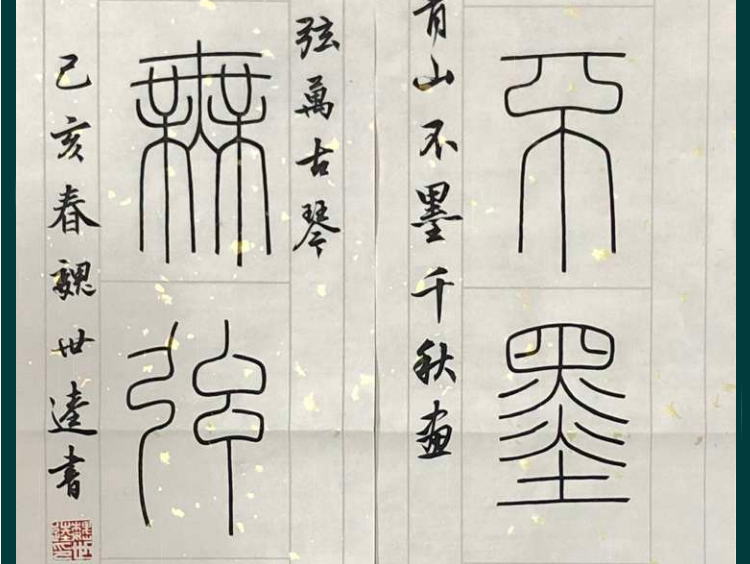 不墨
青山不墨千秋畫
弦萬古琴
無弦
己亥春魏世達書